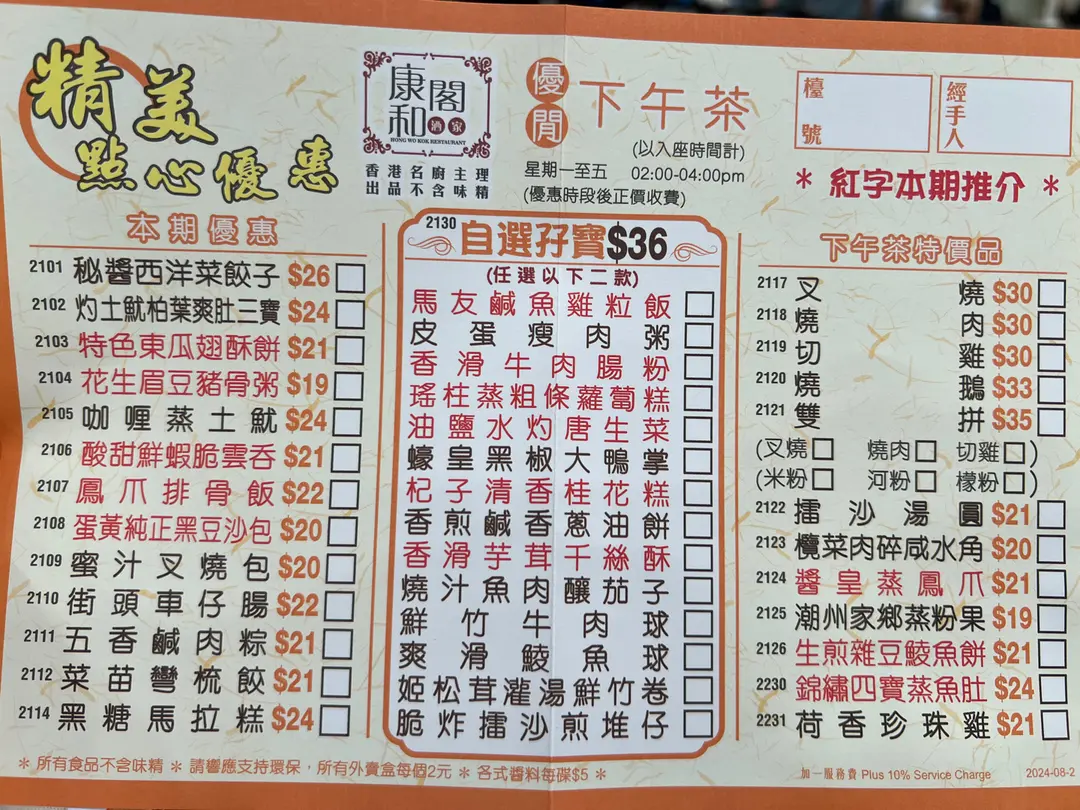 精美
點心優惠
康和閣
酒家
HONG WO KOK RESTAURANT
香港名廚主理
出品不含味精
優閒 下午茶
(以入座時間計)
星期一至五 02:00-04:00pm
(優惠時段後正價收費)
檯號
經手人
* 紅字本期推介 *
本期優惠
2101 秘醬西洋菜餃子 $26
2102 灼土魷柏葉爽肚三寶 $24
2103 特色東瓜翅酥餅 $21
2104 花生眉豆豬骨粥 $19
2105 咖喱蒸土魷 $24
2106 酸甜鮮蝦脆雲吞 $21
2107 鳳爪排骨飯 $22
2108 蛋黃純正黑豆沙包 $20
2109 蜜汁叉燒包 $20
2110 街頭車仔腸 $22
2111 五香鹹肉粽 $21
2112 菜苗彎梳餃 $21
2114 黑糖馬拉糕 $24
2130 自選孖寶 $36
(任選以下二款)
馬友鹹魚雞粒飯
皮蛋瘦肉粥
香滑牛肉腸粉
瑤柱蒸粗條蘿蔔糕
油鹽水灼唐生菜
蠔皇黑椒大鴨掌
杞子清香桂花糕
香煎鹹香蔥油餅
香滑芋茸千絲酥
燒汁魚肉釀茄子
鮮竹牛肉球
爽滑鯪魚球
姬松茸灌湯鮮竹卷
脆炸擂沙煎堆仔
下午茶特價品
2117 叉燒 $30
2118 燒肉 $30
2119 切雞 $30
2120 燒鵝 $33
2121 雙拼 $35
(叉燒 燒肉 切雞)
(米粉 河粉 檬粉)
2122 擂沙湯圓 $21
2123 欖菜肉碎咸水角 $20
2124 醬皇蒸鳳爪 $21
2125 潮州家鄉蒸粉果 $19
2126 生煎雜豆鯪魚餅 $21
2230 錦繡四寶蒸魚肚 $24
2231 荷香珍珠雞 $21
* 所有食品不含味精 * 請響應支持環保，所有外賣盒每個2元 * 各式醬料每碟$5 *
加一服務費 Plus 10% Service Charge
2024-08-2